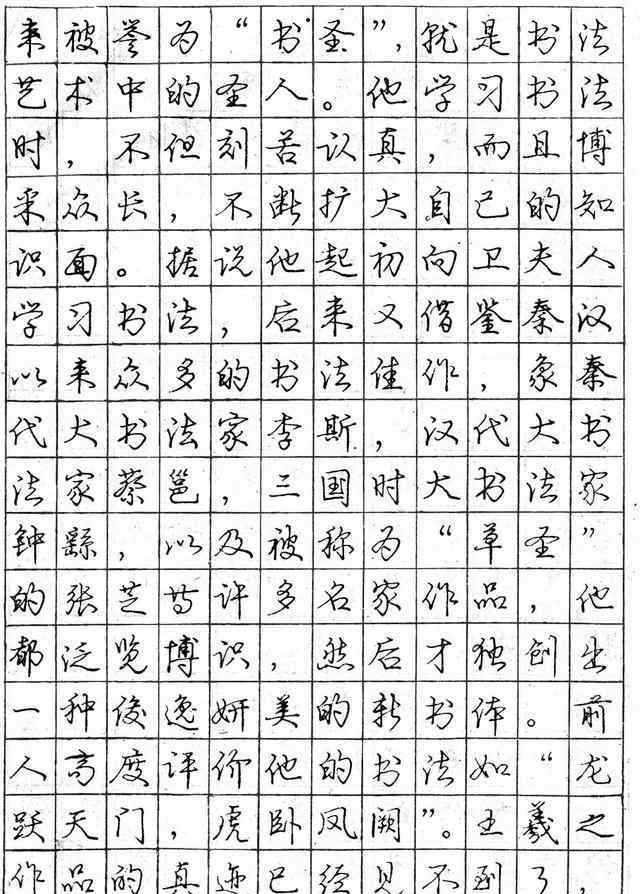 来被誉为“书圣”，就是书法
艺术中的圣人。他学习书法
时，不但刻苦认真，而且博
采众长，不断扩大自己的知
识面。据说他起初向卫夫人
学习书法，后来又借鉴秦汉
以来众多的书法佳作，象秦
代大书法家李斯，汉代大书
法家蔡邕，三国时大书法家
钟繇，以及被称为“草圣”
的张芝等许多名家作品，他
都泛览博识，然后才独创出
一种俊逸妍美的新书体。前
人高度评价他的书法如“龙
跃天门，虎卧凤阙”。王羲之
作品的真迹已经见不到了，